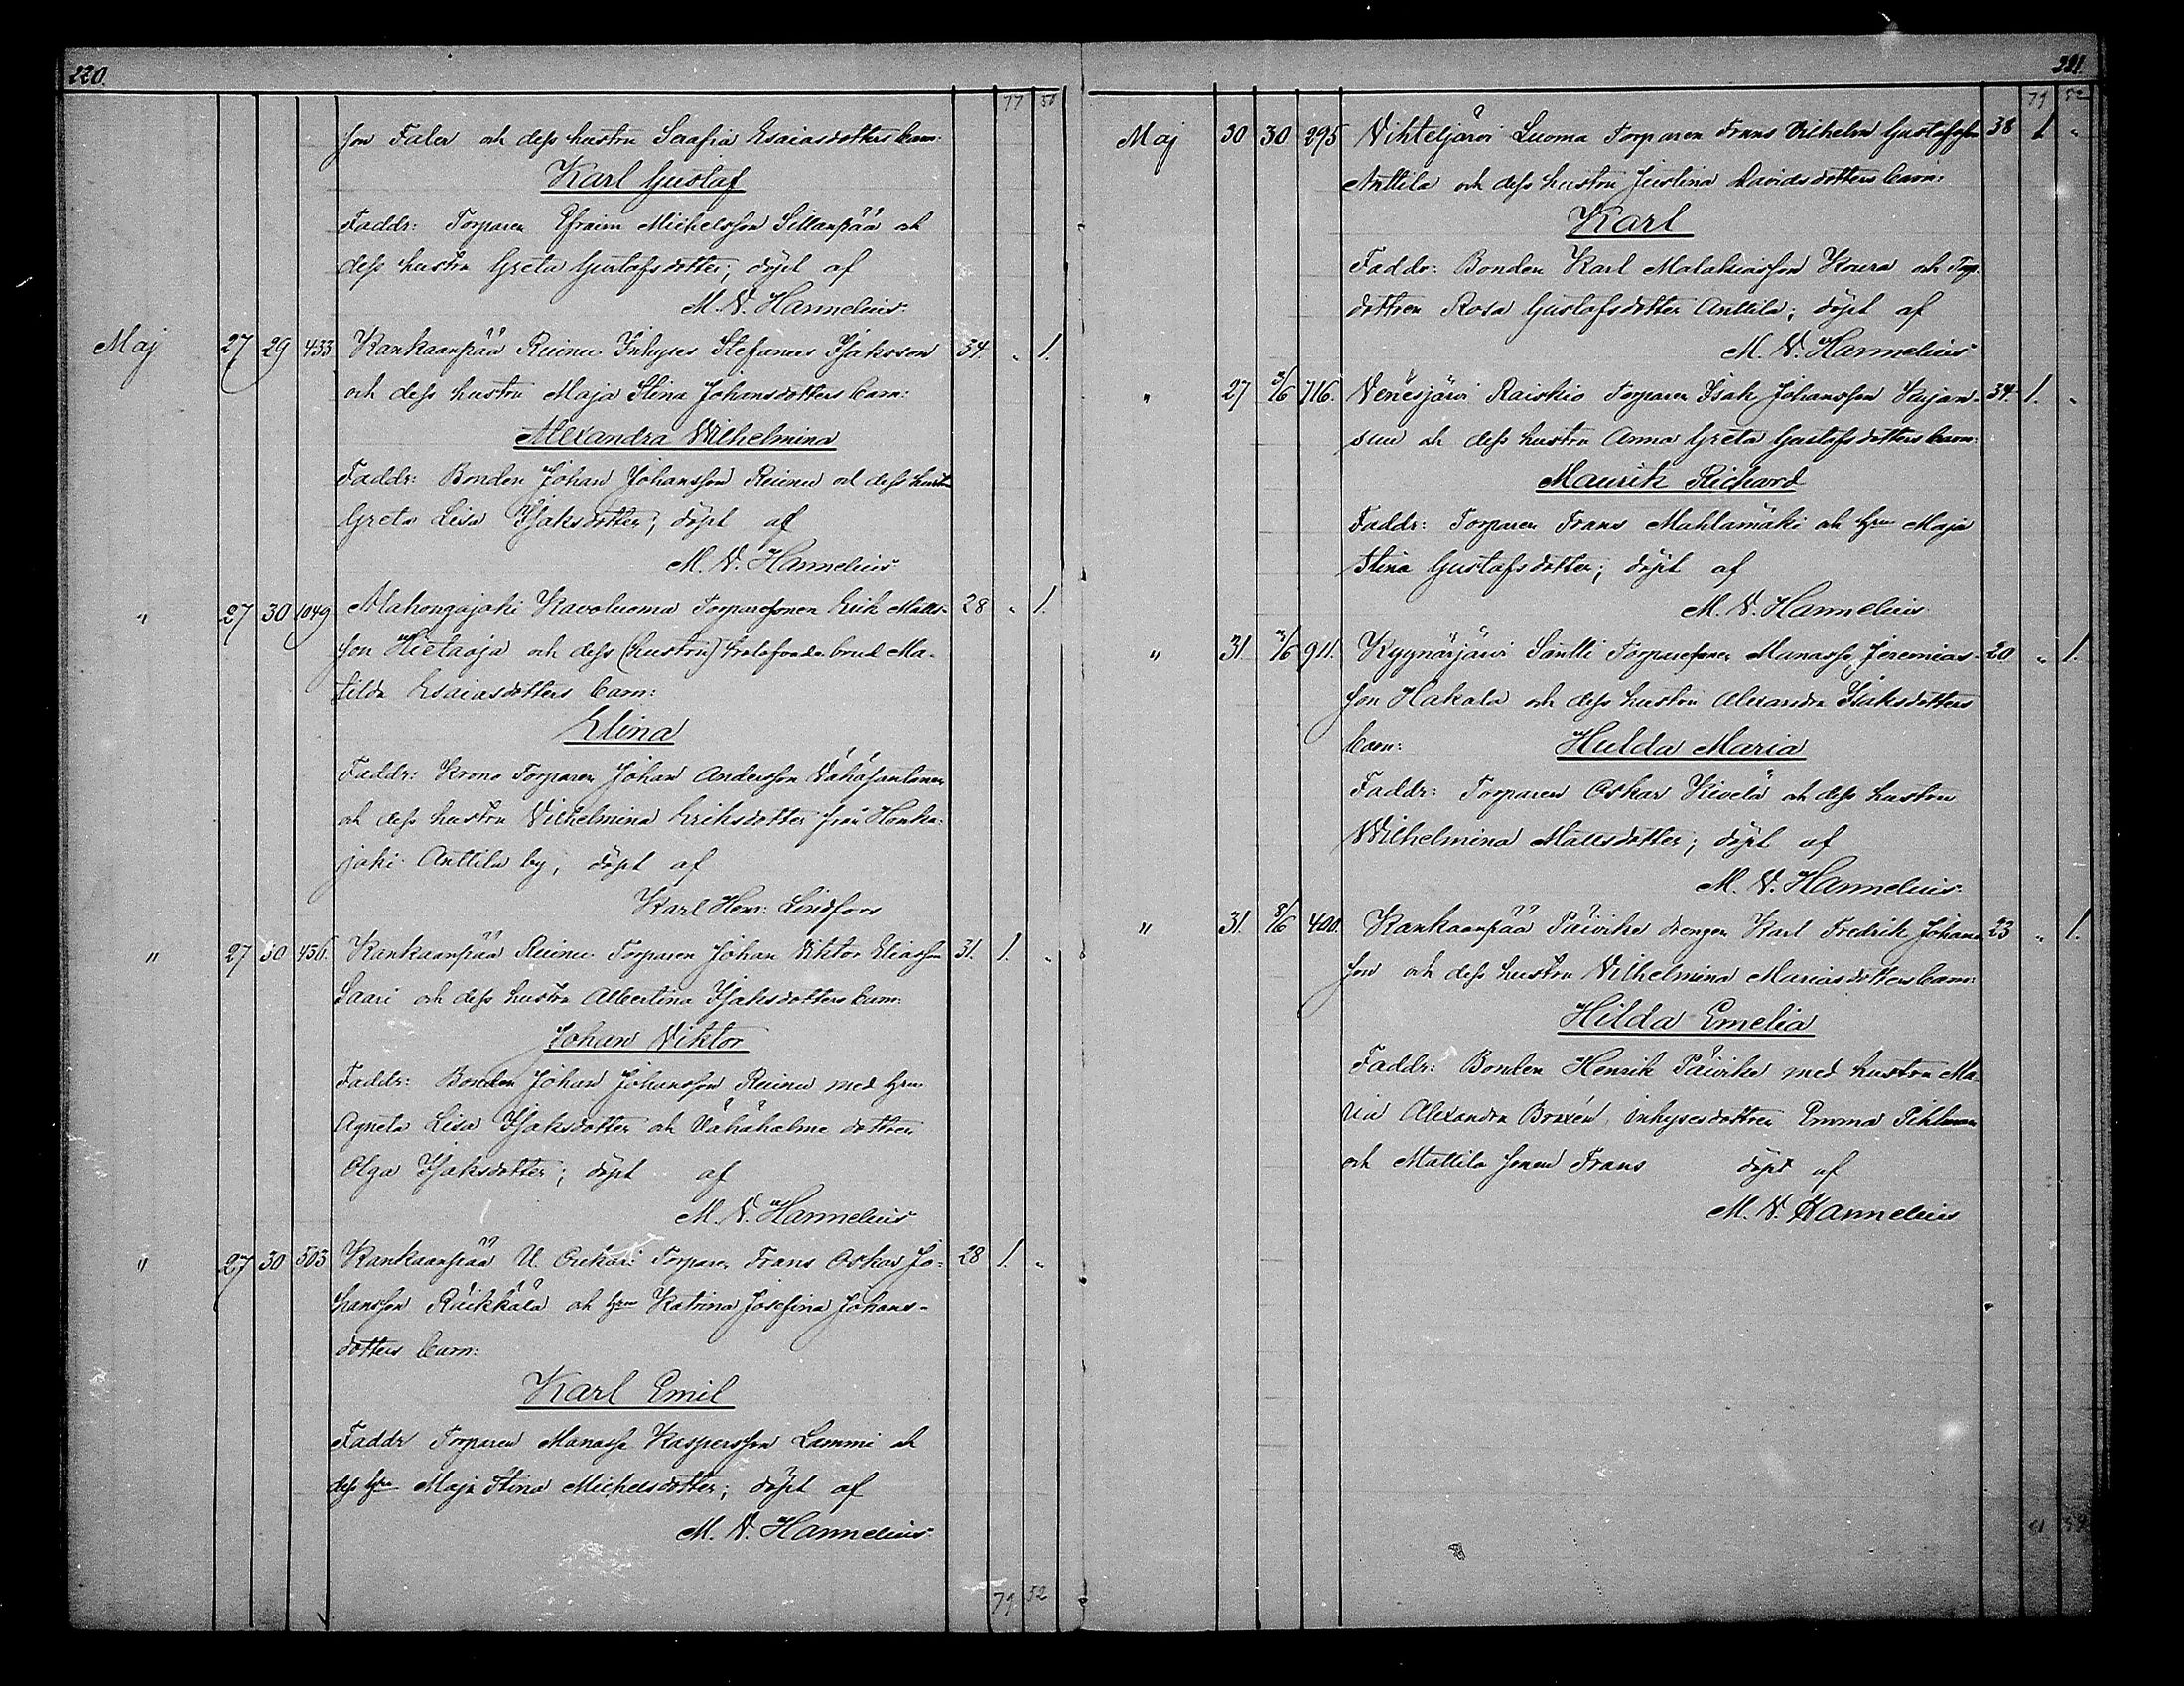 220.
77 50
son Falen och dess hustru Serafia Esaiasdotters barn:
Karl Gustaf
Faddr: Torparen Efraim Michelsson Sillanpää och
dess hustru Greta Gustafsdotter; döpt af
M. V. Hannelius
Maj 27 29 433 Kankaanpää Ruinu. Inhyses Stefanus Isaksson 34. " 1.
och dess hustru Maja Stina Johansdotters barn:
Alexandra Wilhelmina
Faddr: Bonden Johan Johansson Ruinu och dess hustru
Greta Lisa Isaksdotter; döpt af
M. V. Hannelius
" 27 30 1049 Alahongajoki Kavoluoma Torparesonen Erik Matts- 28 " 1.
son Hietaoja och dess (hustru) trolofvade brud Ma-
tilda Esaiasdotters barn:
Elina
Faddr: Krono Torparen Johan Andersson Vähäsantanen
och dess hustru Vilhelmina Eriksdotter från Honka-
joki Anttila by, döpt af
Karl Henr: Lindfors
" 27 30 436. Kankaanpää Ruinu. Torparen Johan Viktor Eliasson 31. 1. "
Saari och dess hustru Albertina Isaksdotters barn:
Johan Viktor
Faddr: Bonden Johan Johansson Ruinu med hru
Agneta Lisa Isaksdotter och Vähähalme dottren
Olga Isaksdotter; döpt af
M. V. Hannelius
" 27 30 503 Kankaanpää U. Torparen Frans Oskar Jo- 28 1. "
hansson Ruikkala och hru Katrina Josefina Johans-
dotters barn:
Karl Emil
Faddr Torparen Manasse Kaspersson Lammi och
dess hru Maja Stina Michelsdotter; döpt af
M. V. Hannelius
79 52
221
79 52
Maj 30 30 295 Vihteljärvi Luoma Torparen Frans Vilhelm Gustafsson 38 1 "
Anttila och dess hustru Justina Davidsdotters barn:
Karl
Faddr: Bonden Karl Malakiasson Koura och Torp.
dottren Rosa Gustafsdotter Anttila; döpt af
M. V. Hannelius
" 27 3/6 716. Venesjärvi Raiskio Torparen Isak Johansson Kujan- 34. 1. "
suu och dess hustru Anna Greta Gustafsdotters barn:
Maurik Richard
Faddr: Torparen Frans Mahlamäki och hru Maja
Stina Gustafsdotter; döpt af
M. V. Hannelius
" 31. 3/6 911. Kyynärjärvi Santti Torparesonen Manasse Jeremias- 20 " 1.
son Hakala och dess hustru Alexandra Isaksdotters
barn: Hulda Maria
Faddr: Torparen Oskar Kivelä och dess hustru
Wilhelmina Mattsdotter; döpt af
M. V. Hannelius
" 31. 8/6 400. Kankaanpää Päivike drengen Karl Fredrik Johans- 23 " 1.
son och dess hustru Vilhelmina Mariasdotters barn:
Hilda Emelia
Faddr: Bonden Henrik Päivike med hustru Ma-
ria Alexandra Boxén, Inhysesdottren Emma Pihlman
och Mattila sonen Frans döpt af
M. V. Hannelius
81 54